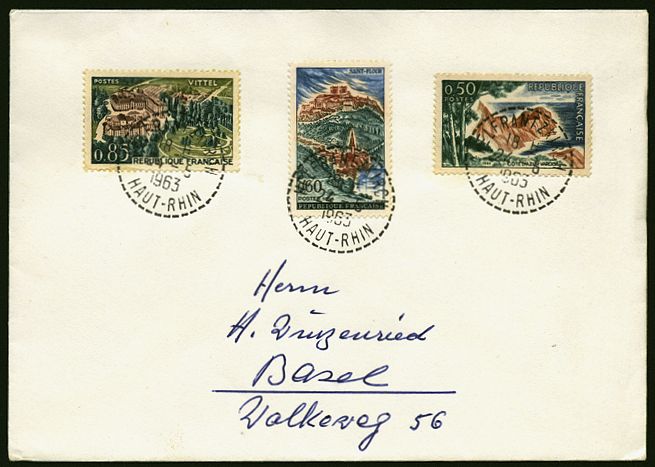 POSTES VITTEL
0.85 REPUBLIQUE FRANÇAISE
SAINT-FLOUR
0.60
POSTES
REPUBLIQUE FRANÇAISE
0.50 REPUBLIQUE FRANÇAISE
POSTES
COTE D'AZUR VAROISE
1963
HAUT-RHIN
1963
HAUT-RHIN
1963
HAUT-RHIN
Herrn
H. Winzenried
Basel
Walkeweg 56